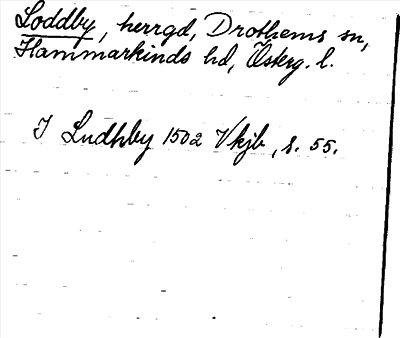 Loddby, herrgd, Drothems sn,
Hammarkinds hd, Österg. l.
I Ludhby 1502 Vkjb, s. 55.